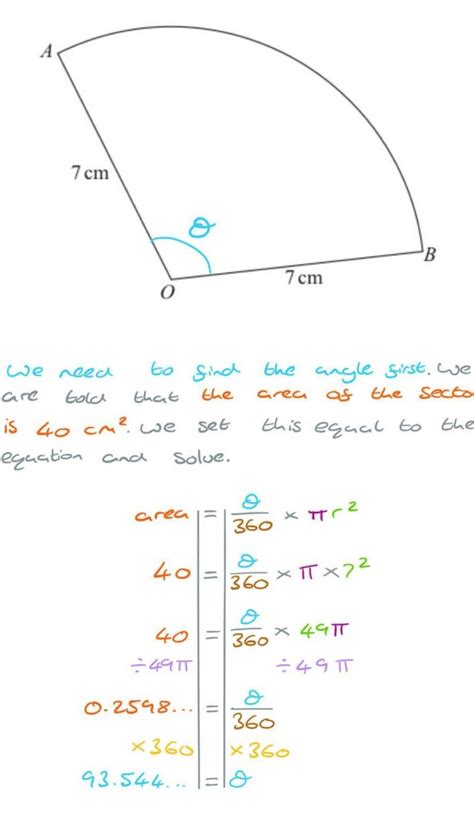 A
7 cm
θ
B
7 cm
O
we need to find the angle first. we
are told that the area of the secto
is 40 cm². we set this equal to the
equation and solve.
area = θ/360 × πr²
40 = θ/360 × π × 7²
40 = θ/360 × 49π
÷49π ÷49π
0.2598... = θ/360
×360 ×360
93.544... = θ